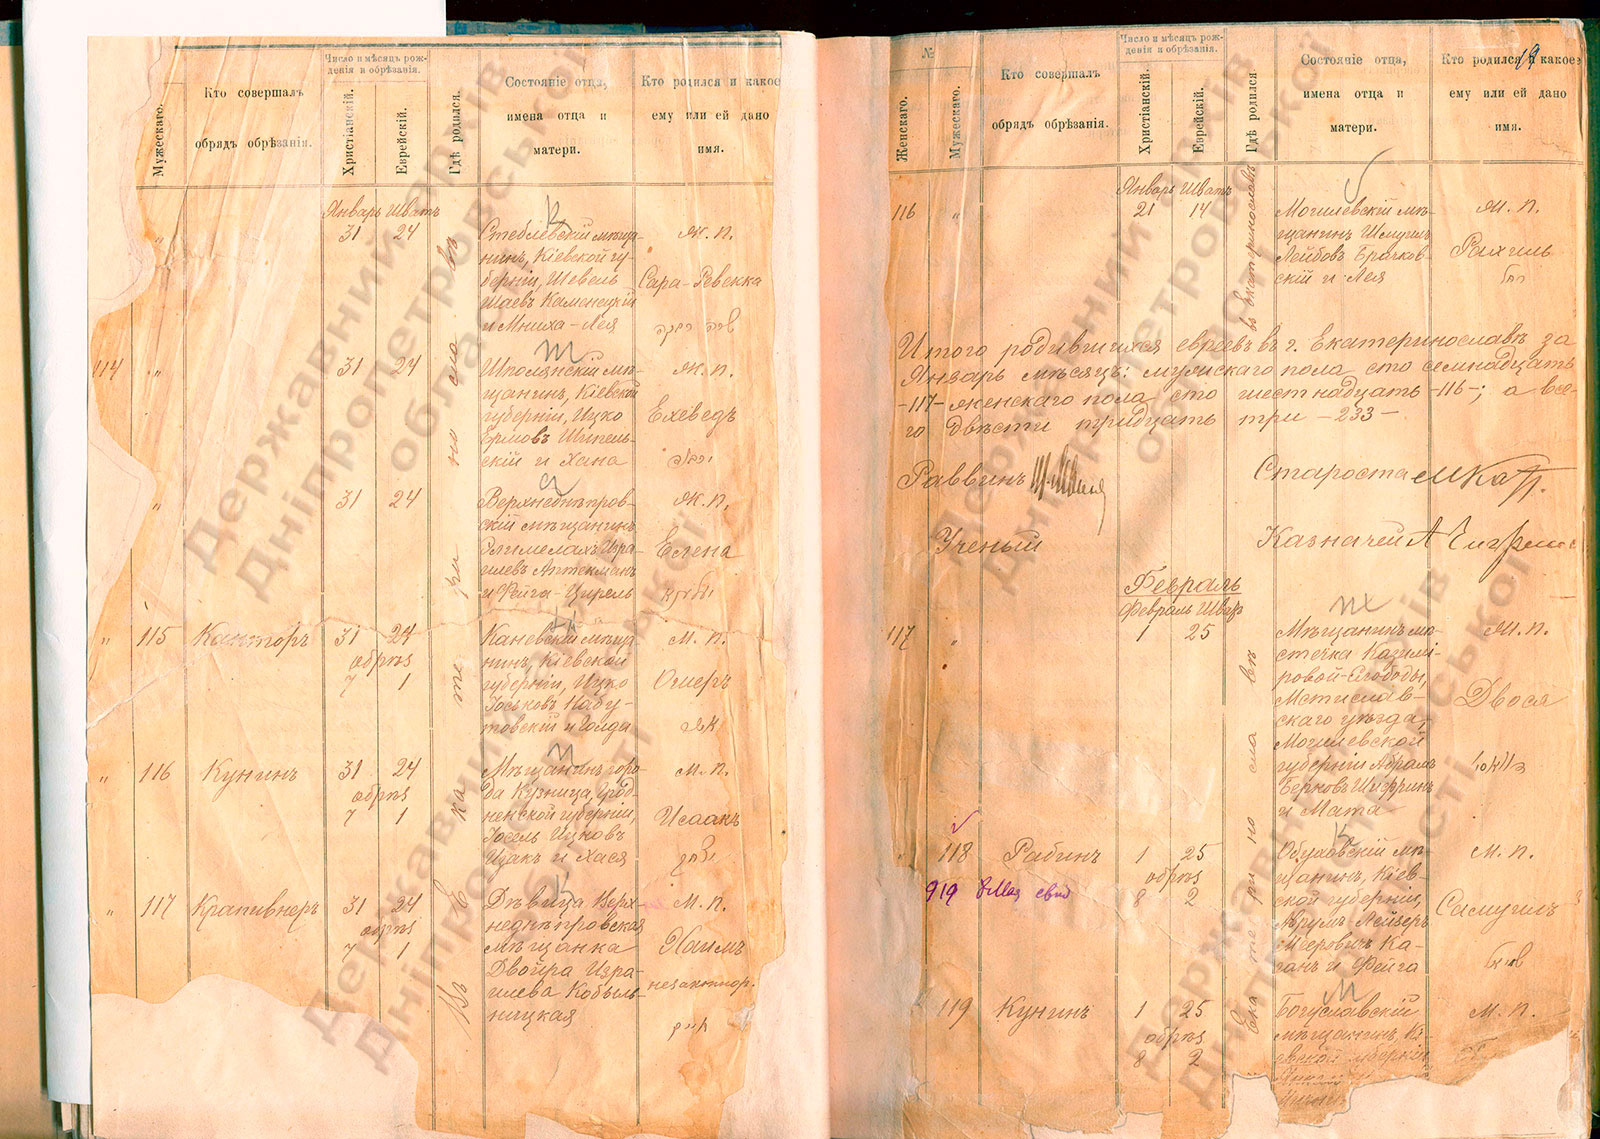 Мужескаго.
Кто совершалъ
обрядъ обрѣзанія.
Число и мѣсяцъ рож-
денія и обрѣзанія.
Христіанскій.
Еврейскій.
Гдѣ родился.
Состояніе отца,
имена отца и
матери.
Кто родился и какое
ему или ей дано
имя.
Январь Шватъ
31 24
Стеблевскій мѣща-
нинъ, Кіевской гу-
берніи, Шевель
Шаевъ Каменецкій
и Мниха-Лея
Ж. п.
Сара-Ревекка
שרה רבקה
114 „ 31 24
Шполянскій мѣ-
щанинъ, Кіевской
губерніи, Ицко
и Хана
Ж. п.
Ехеведъ
„ 31 24
Верхнеднѣпров-
скій мѣщанинъ
Элимелахъ Изра-
илевъ Аптекманъ
и Фейга-Цирель
Ж. п.
Елена
„ 115 Канторъ 31 24
обрѣз
7 1
Каневскій мѣща-
нинъ, Кіевской
губерніи, Ицко
Іоськовъ Набу-
товскій и Голда
М. п.
„ 116 Кунинъ 31 24
обрѣз
7 1
Мѣщанинъ горо-
да Кузница, Грод-
ненской губерніи,
Іосель Ицковъ
Ицакъ и Хася
М. п.
Исаакъ
יצחק
„ 117 Крапивнеръ 31 24
обрѣз
7 1
Дѣвица Верх-
неднѣпровская
мѣщанка
Двойра Изра-
илева Кобыль-
ницкая
М. п.
Хаимъ
незаконнор.
חיים
№
Женскаго.
Мужескаго.
Кто совершалъ
обрядъ обрѣзанія.
Число и мѣсяцъ рож-
денія и обрѣзанія.
Христіанскій.
Еврейскій.
Гдѣ родился
Состояніе отца,
имена отца и
матери.
Кто родился и какое
ему или ей дано
имя.
19
Январь Шватъ
116 „ 21 14
въ Екатеринославѣ
Могилевскій мѣ-
щанинъ Шмуилъ
Лейбовъ Брачков-
скій и Лея
Ж. п.
Рахиль
רחל
Итого родившихся евреевъ въ г. Екатеринославѣ за
Январь мѣсяцъ: мужскаго пола сто семнадцать
-117- женскаго пола сто шестнадцать -116-; а все-
го двѣсти тридцать три -233-
Раввинъ
Староста
Ученый
Казначей
Февраль
Февраль Шватъ
117 „ 1 25
Мѣщанинъ мѣ-
стечка Казими-
ровой-Слободы,
Мстислав-
скаго уѣзда,
Могилевской
губерніи Абрамъ
Берковъ Шифринъ
и Мата
Ж. п.
Двося
118 Рабинъ 1 25
обрѣз
8 2
919
Обуховскій мѣ-
щанинъ, Кіев-
ской губерніи,
Аврумъ Лейзеръ
Меровичъ Ка-
ганъ и Фейга
М. п.
Самуилъ
119 Кунинъ 1 25
обрѣз
8 2
Богуславскій
мѣщанинъ, Кі-
евской губерніи
М. п.
Державний архів
Дніпропетровської
області